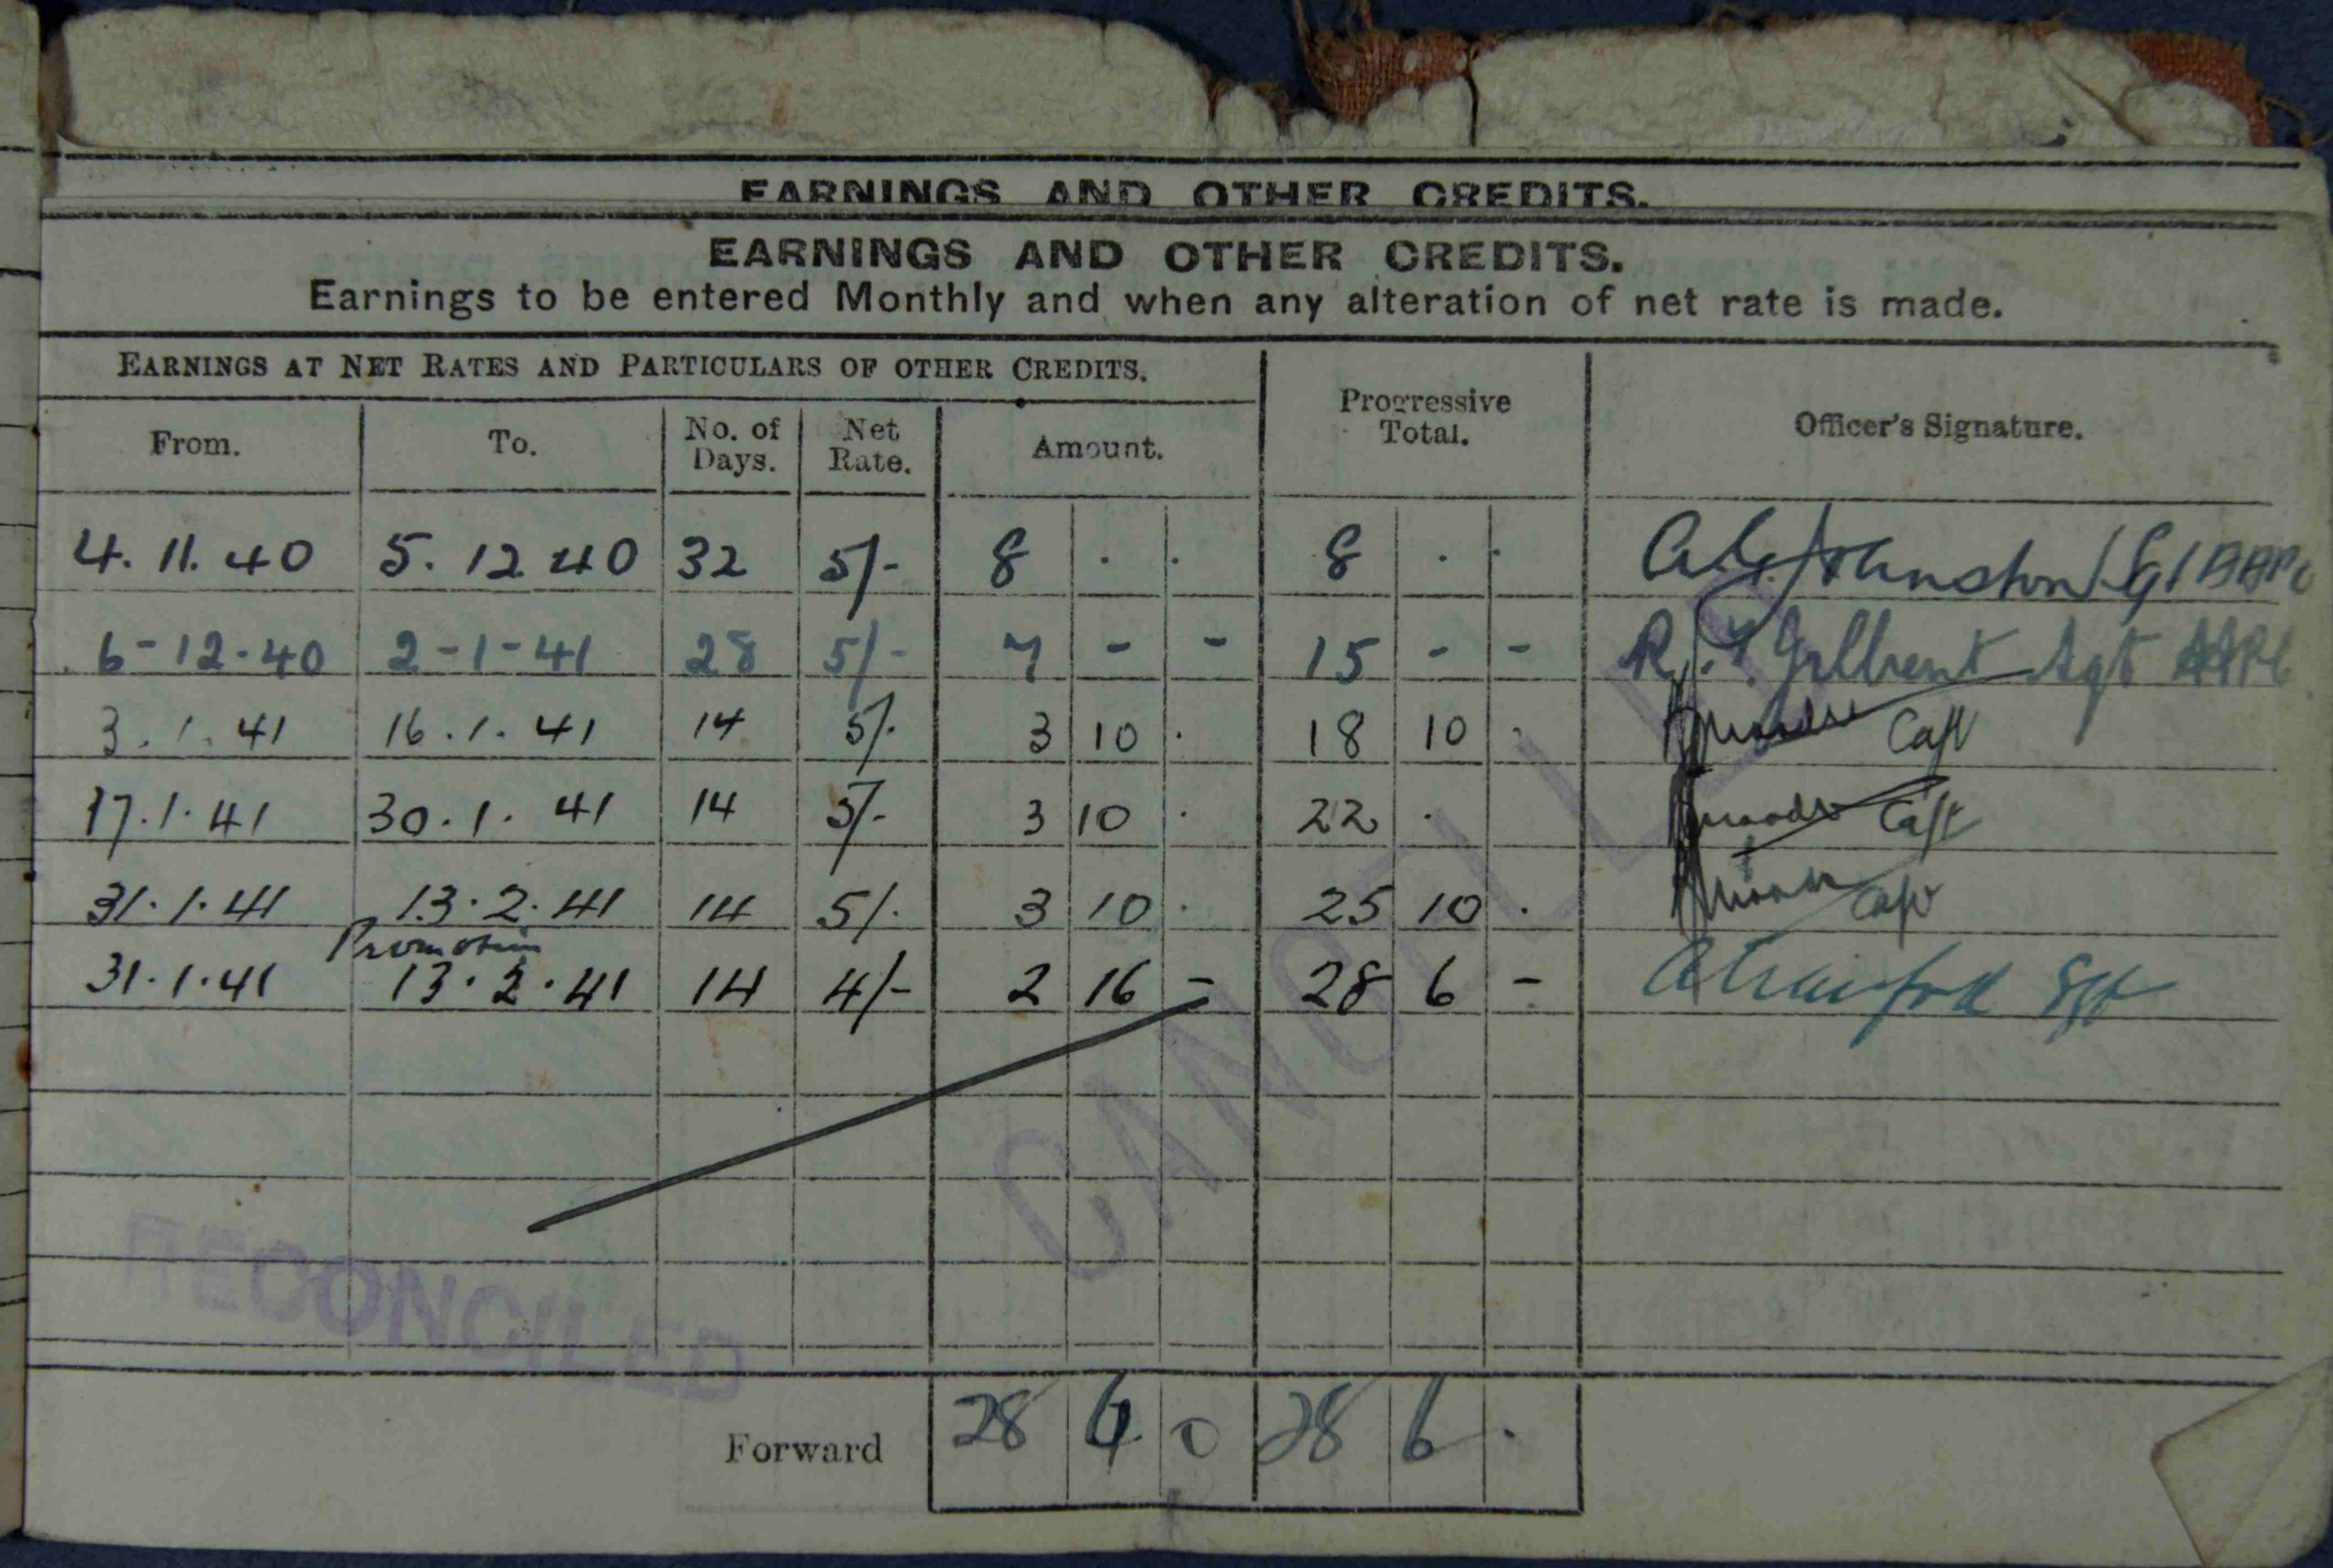 EARNINGS AND OTHER CREDITS.
EARNINGS AND OTHER CREDITS.
Earnings to be entered Monthly and when any alteration of net rate is made.
EARNINGS AT NET RATES AND PARTICULARS OF OTHER CREDITS. Progressive Total. Officer's Signature.
From. To. No. of Days. Net Rate. Amount.
4. 11. 40 5. 12 40 32 5/- 8 . . 8 . . Johnston
6-12-40 2-1-41 28 5/- 7 - - 15 - -
3.1.41 16.1.41 14 5/. 3 10 . 18 10 . Capt
17.1.41 30.1.41 14 5/- 3 10 . 22 . Capt
31.1.41 13.2.41 14 5/. 3 10 . 25 10 . Capt
Promotion
31.1.41 13.2.41 14 4/- 2 16 - 28 6 - Sgt
CANCELLED
RECONCILED
Forward 28 6 0 28 6 .